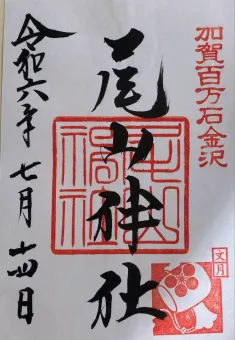 加賀百万石金沢
尾山神社
尾山神社
文月
令和六年七月十四日